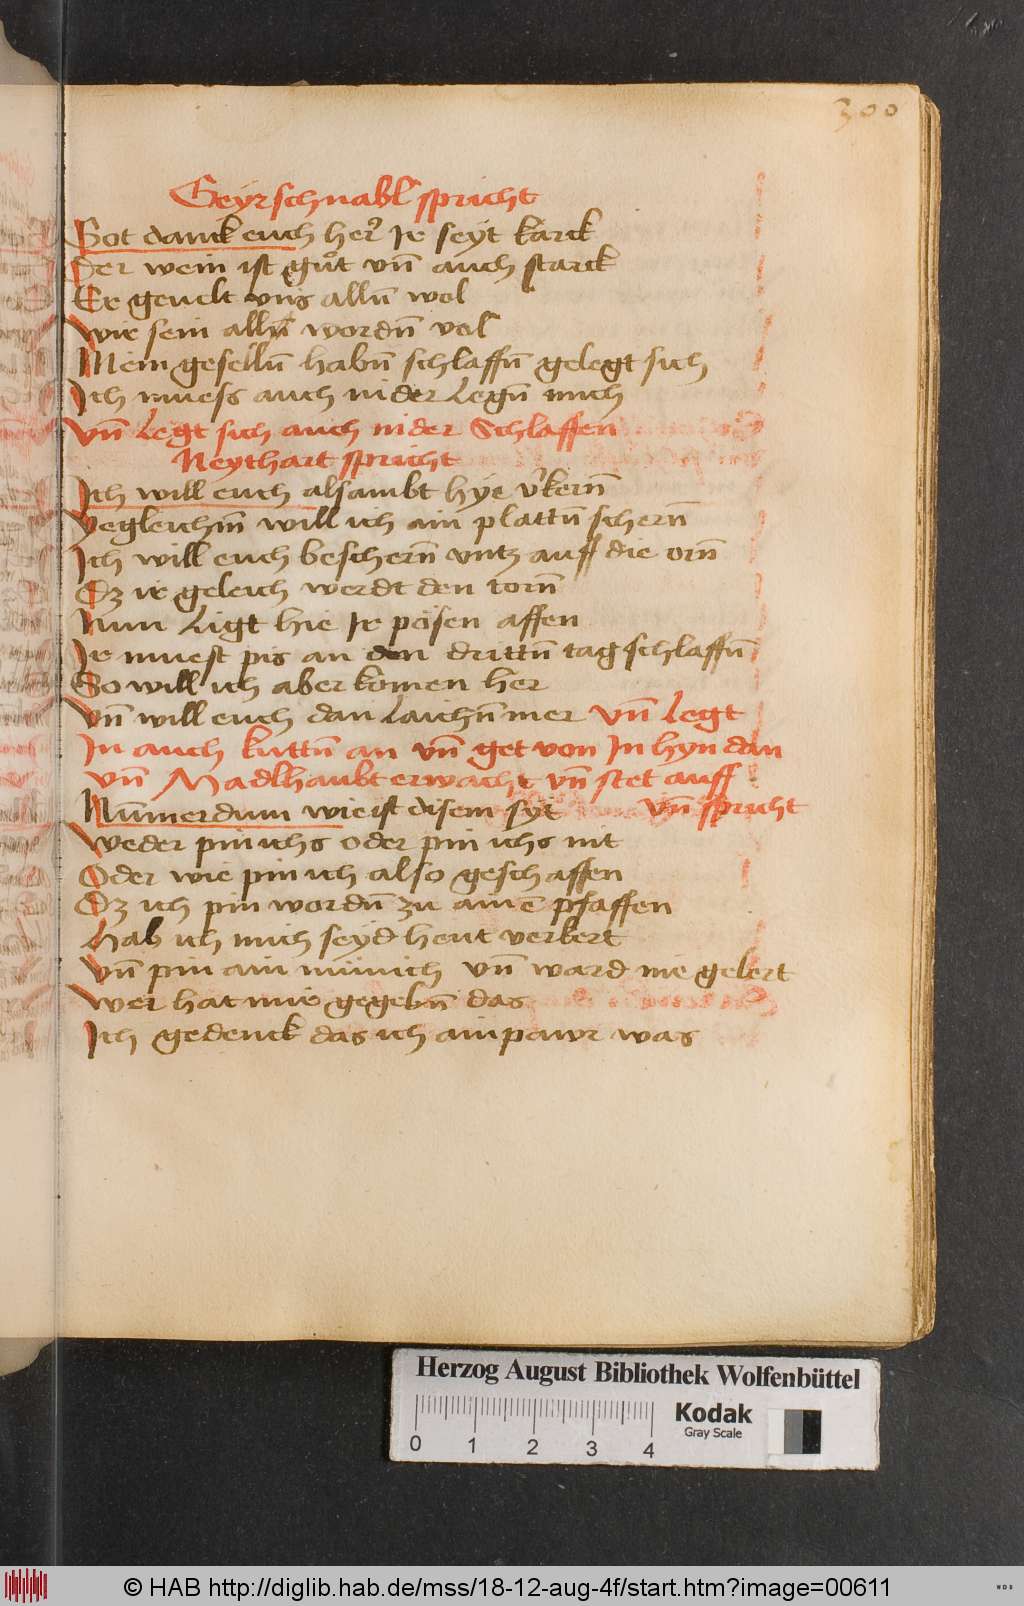 300
Geyrschnabl spricht
Got danck euch her Ir seyt karck
Der wein ist guͦt vn̄ auch starck
Er geuelt vns alln̄ wol
Wir sein alln̄ wordn̄ vol
Mein geselln̄ habn̄ schlaffn̄ gelegt sich
Ich muess auch nider Legn̄ mich
Vn̄ Legt sich auch nider Schlaffen
Neythart spricht
Ich will euch alsambt hye v̓kern̄
Yegleichm̄ will ich ain plattn̄ schern̄
Ich will euch beschern̄ vntz auff die orn̄
Dz ir geleich werdt den torn̄
Nun Ligt hie Ir pösen affen
Ir muest pis an den drittn̄ tag schlaffn̄
So will ich aber komen her
Vn̄ will euch dan Laichn̄ mer Vn̄ Legt
In auch kuttn̄ an vn̄ get von In hyn dan
vn̄ Madlhaubt erwacht vn̄ stet auff
Nu̅merdum wie ist disem syt vn̄ spricht
Weder pin ichs oder pin ichs nit
Oder wie pin ich also geschaffen
Dz ich pin wordn̄ zu aine̅ pfaffen
Hab ich mich seyd heut verkert
Vn̄ pin ain münich vn̄ ward nie gelert
Wer hat mir gegebn̄ das
Ich gedenck das ich ain pawr was
Herzog August Bibliothek Wolfenbüttel
Kodak
Gray Scale
0 1 2 3 4
© HAB http://diglib.hab.de/mss/18-12-aug-4f/start.htm?image=00611